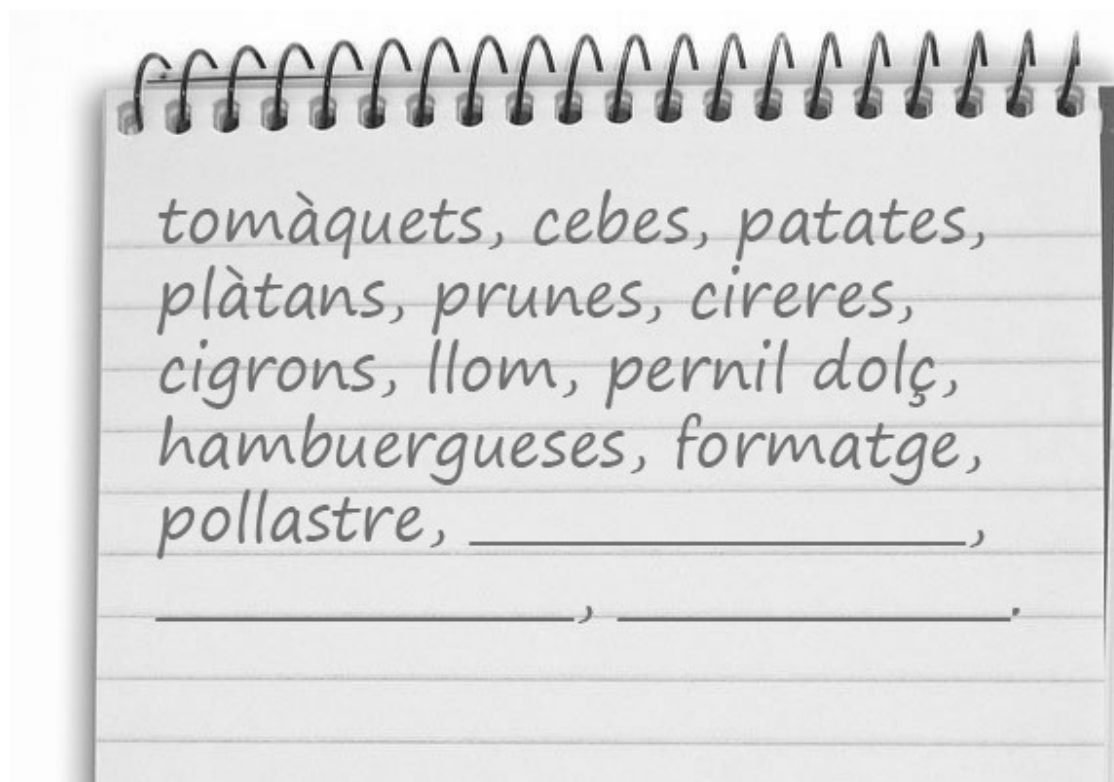 tomàquets, cebes, patates,
plàtans, prunes, cireres,
cigrons, llom, pernil dolç,
hambuergueses, formatge,
pollastre, ____________________,
_________________, ________________.